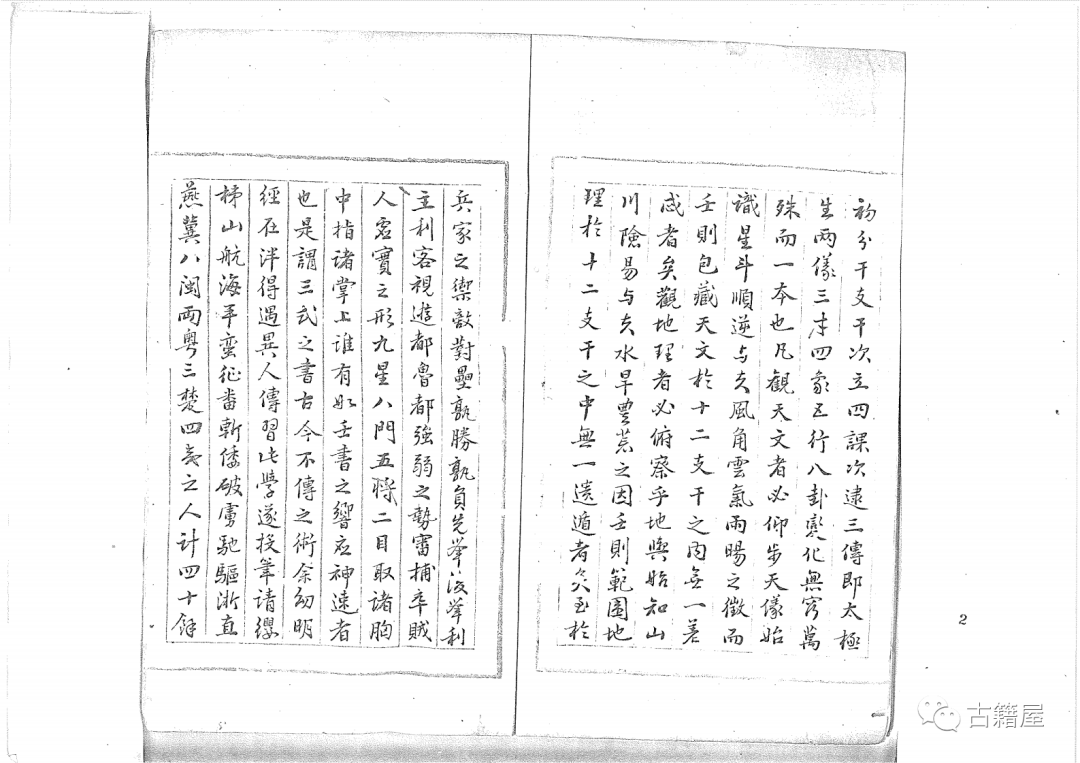 初分干支干次立四課次逮三傳即太極
生两儀三才四象五行八卦變化無窮萬
殊而一本也凡觀天文者必仰步天儀始
識星斗順逆与夫風角雲氣雨暘之徵而
壬則包藏天文於十二支干之內無一差
忒者矣觀地理者必俯察乎地輿始知山
川險易与夫水旱豐荒之因壬則範圍地
理於十二支干之中無一遺遁者矣至於
兵家之禦敵對壘孰勝孰負先举後举利
主利客視遊都魯都強弱之勢審捕卒賊
人虛實之形九星八門五將二目取諸胸
中指諸掌上誰有如壬書之響应神速者
也是謂三式之書古今不傳之術余幼明
經在泮得遇異人傳習此學遂投筆請纓
梯山航海平蛮征番斬倭破虜馳驅浙直
燕冀八閩兩粤三楚四夷之人計四十餘
2
古籍屋